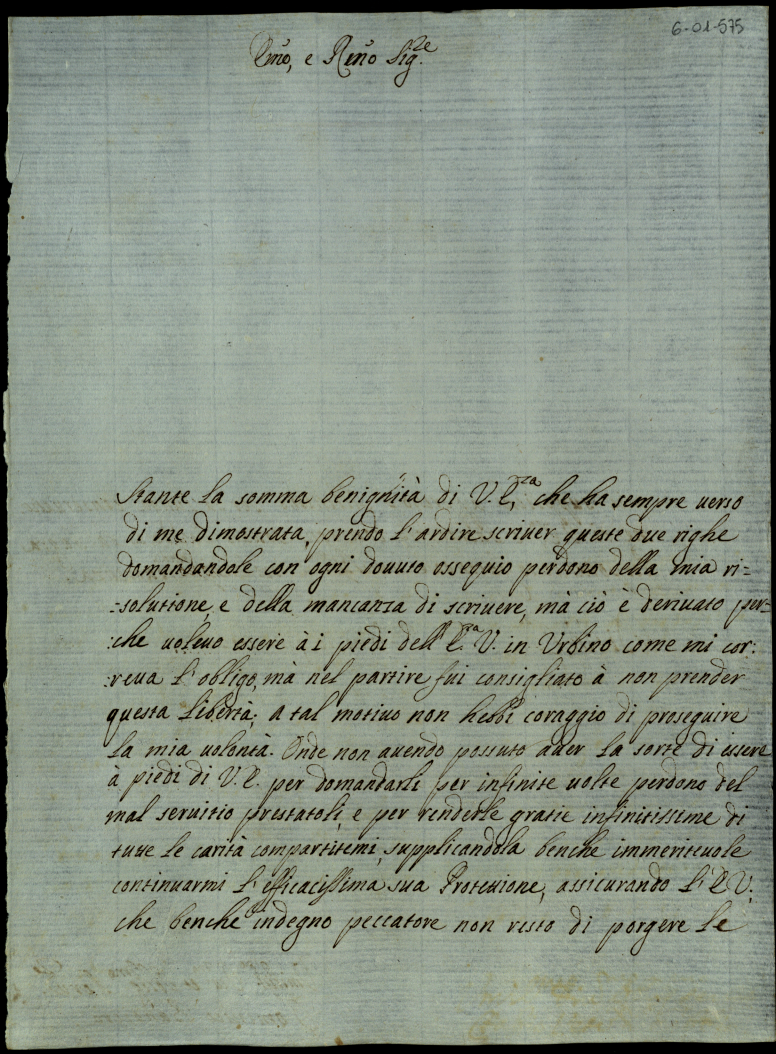 6-01-575
Emo, e Rmo Sig.re
Stante la somma benignità di V. E.za che ha sempre verso
di me dimostrata, prendo l'ardire scriver queste due righe
domandandole con ogni dovuto ossequio perdono della mia ri=
=solutione, e della mancanza di scrivere, mà ciò è derivato per=
:che volevo essere à i piedi dell'E.za V. in Urbino come mi cor:
:reva l'obligo, mà nel partire fui consigliato à non prender
questa libertà; a tal motivo non hebbi coraggio di proseguire
la mia volontà. Onde non avendo possuto aver la sorte di essere
à piedi di V. E. per domandarli per infinite volte perdono del
mal servitio prestatoli, e per renderle gratie infinitissime di
tutte le carità compartitemi, supplicandola benche immeritevole
continuarmi l'efficacissima sua Protettione, assicurando l'E. V.
che benche indegno peccatore non resto di porgere le